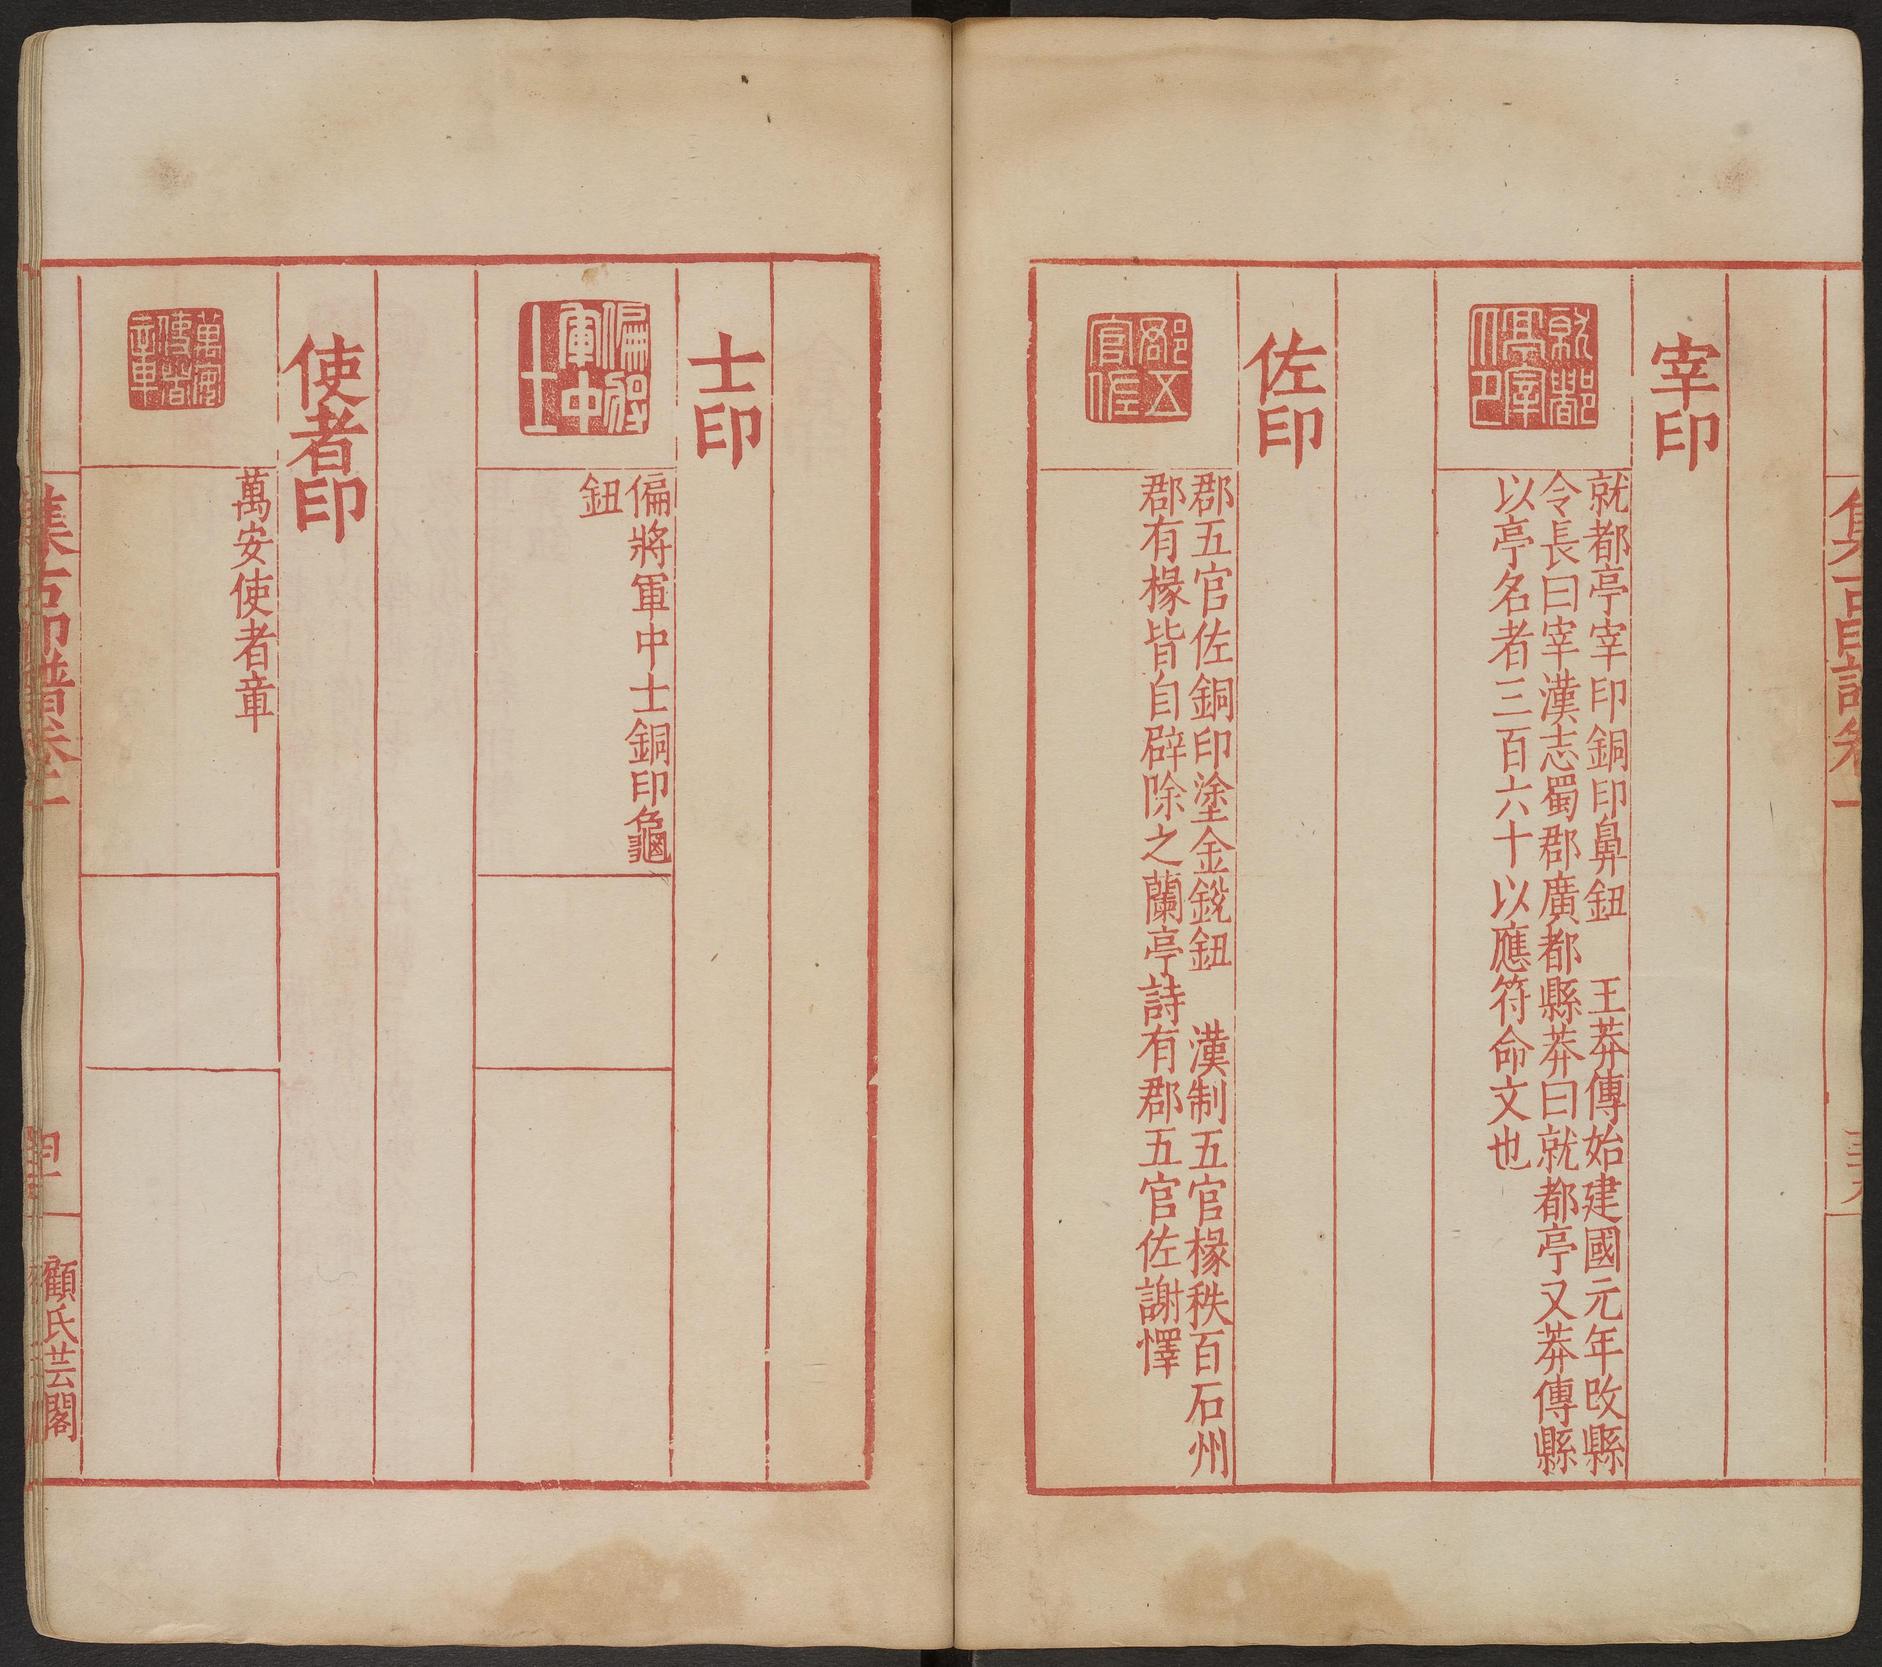 集古印譜卷一
宰印
就都亭宰印
就都亭宰印銅印鼻鈕 王莽傳始建國元年改縣
令長曰宰漢志蜀郡廣都縣莽曰就都亭又莽傳縣
以亭名者三百六十以應符命文也
佐印
郡五官佐
郡五官佐銅印塗金鈗鈕 漢制五官椽秩百石州
郡有椽皆自辟除之蘭亭詩有郡五官佐謝懌
士印
偏將軍中士
偏將軍中士銅印龜
鈕
使者印
萬安使者章
萬安使者章
集古印譜卷一
顧氏芸閣